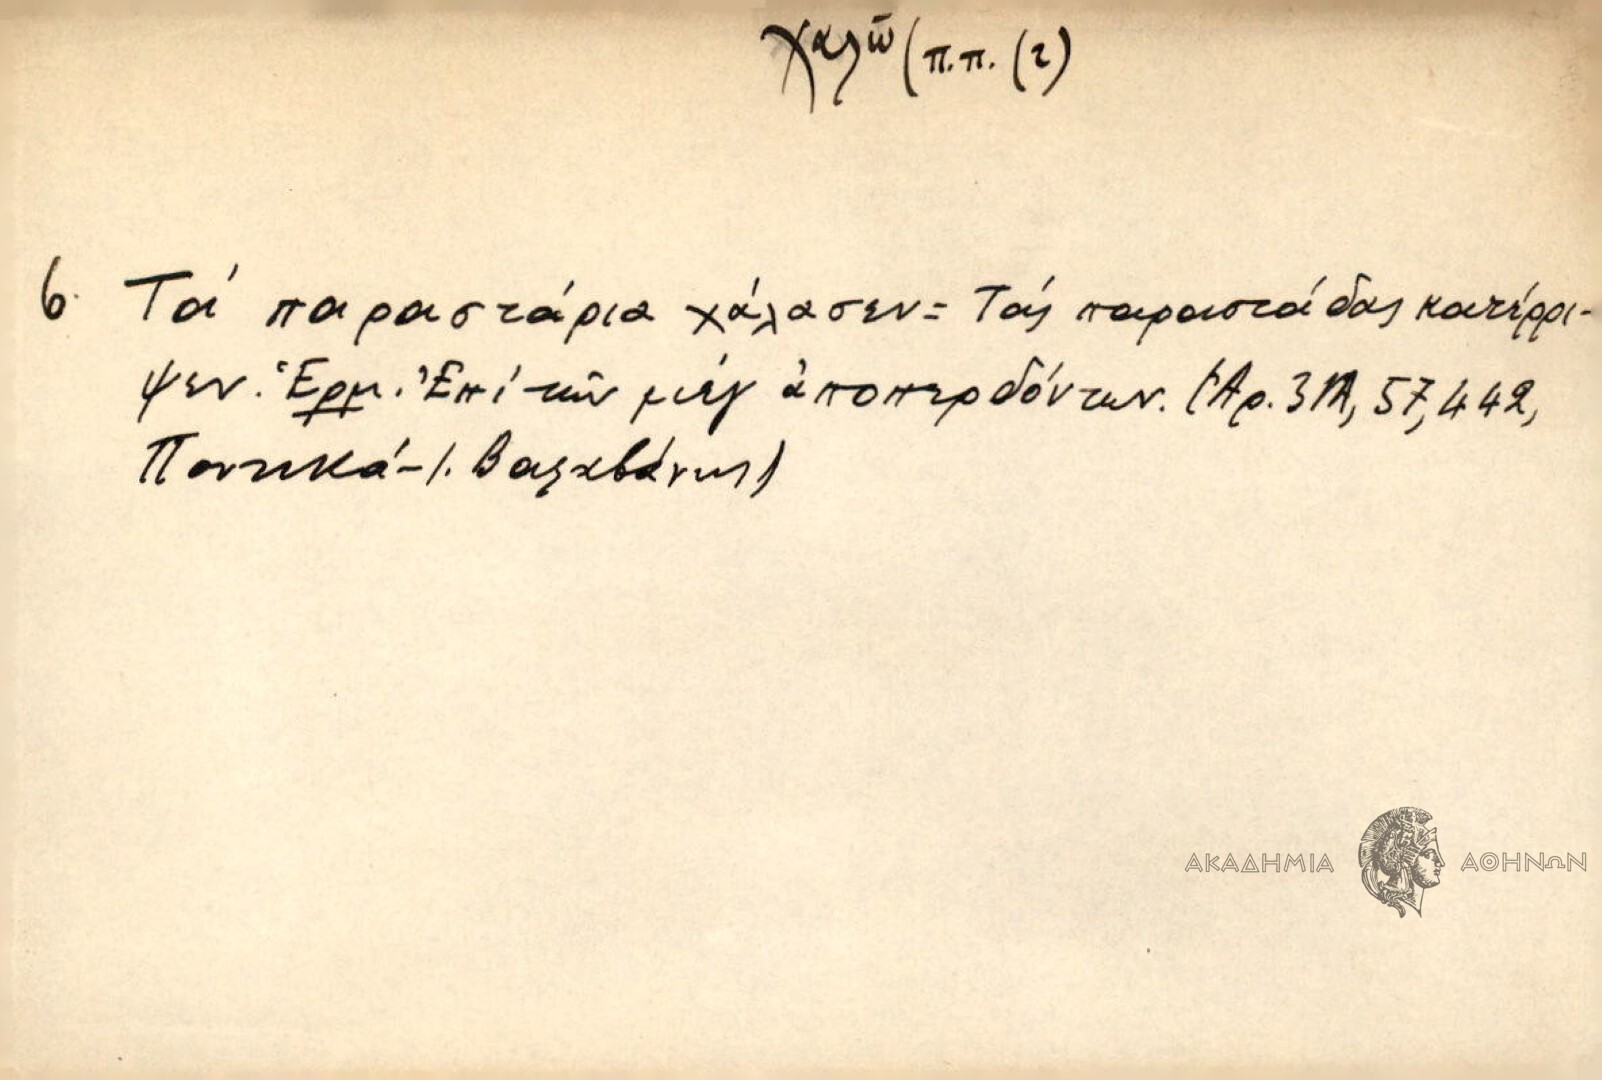 χαλῶ (π.π. (2)
6. Τά παραστάρια χάλασεν = Τάς παραστάδας κατέρρι-
ψεν. Ἑρμ. Ἐπί τῶν μέγ ἀποπερδόντων. (Ἀρ. 57, 442,
Ποντικά - Ι. Βαλαβάνης)
ΑΚΑΔΗΜΙΑ ΑΘΗΝΩΝ